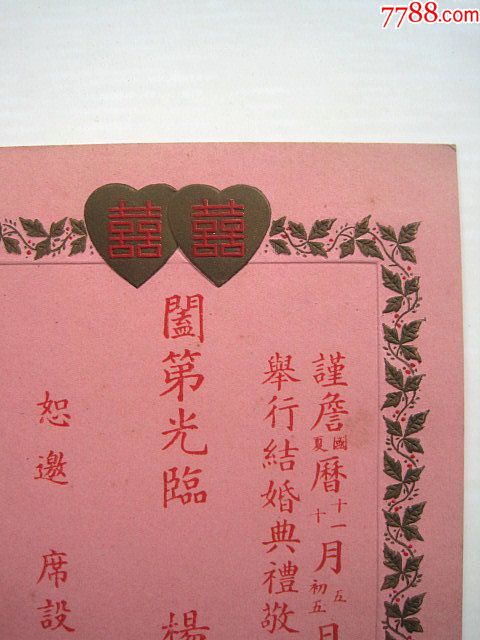 7788.com
囍 囍
謹詹國夏曆十一十月五初五日
舉行結婚典禮敬
闔第光臨
楊
恕邀
席設